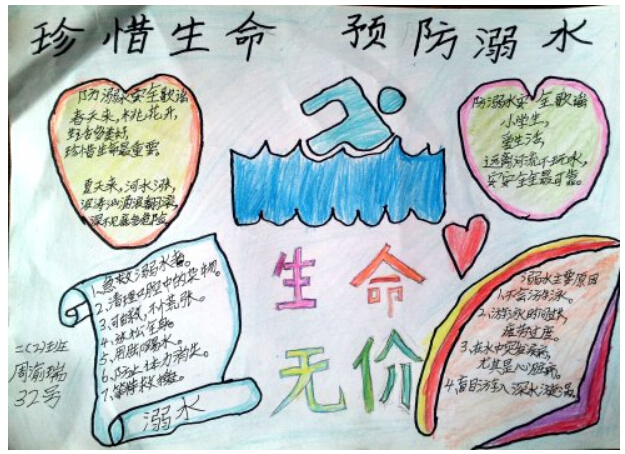 珍惜生命 预防溺水
防溺水安全歌谣
春天来,桃花开,
生活多美好,
珍惜生命最重要。
夏天来,河水涨,
深不见底多危险
防溺水安全歌谣
小学生,
爱生活,
远离河流不玩水,
安安全全最可靠。
生命
无价
1、急救溺水者。
2、清理口腔中的异物。
3、可自救,不慌张。
4、放松全身。
5、用屈腿踢水。
6、防止体力消失。
7、等待救援。
溺水
溺水主要原因
1、不会游泳。
2、游泳时间过长
疲劳过度。
3、在水中突发疾病,
尤其是心脏病。
4、盲目游入深水漩涡。
二(2)班
周渝瑞
32号